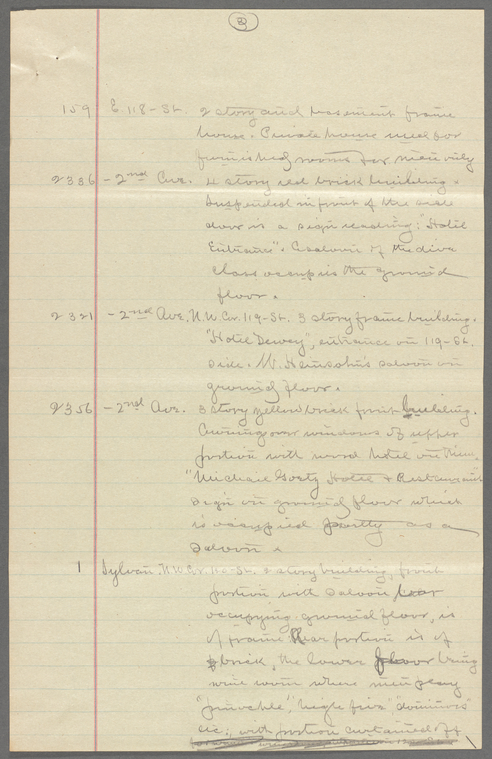 3
159 E. 118 - St. 2 story and basement frame
house. Private house used for
furnished rooms for men only
2386 - 2nd Ave. 4 story red brick building.
Suspended in front of the side
door is a sign reading: "Hotel
Entrance". Saloon of the dive
class occupies the ground
floor.
2321 - 2nd Ave. N.W. Cor. 119 - St. 3 story frame building.
"Hotel Dewey", entrance on 119 - St.
side. Saloon on
ground floor.
2356 - 2nd Ave. 3 story yellow brick front building.
Awning over windows of upper
portion with word Hotel on them.
"Michael Hotel & Restaurant
sign on ground floor which
is occupied partly as a
saloon.
1 Sylvan N.W. Cor. St. 2 story building, front
portion with saloon
occupying ground floor, is
of frame. Rear portion is of
brick, the lower floor being
wine room where men play
"pinochle", "dominos"
etc; with portion curtained off